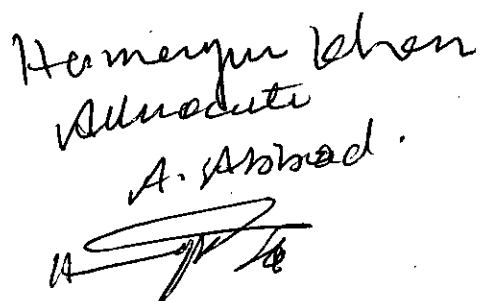 Humayun Khan
Advocate
A. Abbad.